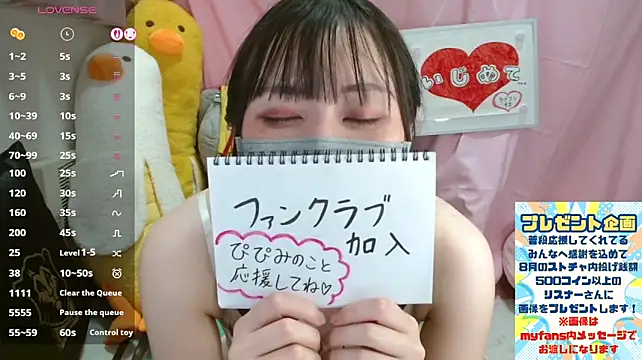 LOVENSE
1~2 5s
3~5 3s
6~9 3s
10~39 10s
40~69 15s
70~99 25s
100 25s
120 30s
160 35s
200 45s
25 Level 1-5
38 10~50s
1111 Clear the Queue
5555 Pause the queue
55~59 60s Control toy
いじめて
ファンクラブ
加入
ぴぴみのこと
応援してね♡
プレゼント企画
普段応援してくれてる
みんなへ感謝を込めて
8月のストチャ内投げ銭額
500コイン以上の
リスナーさんに
画像をプレゼントします!
※画像は
myfans内メッセージで
お渡しになります